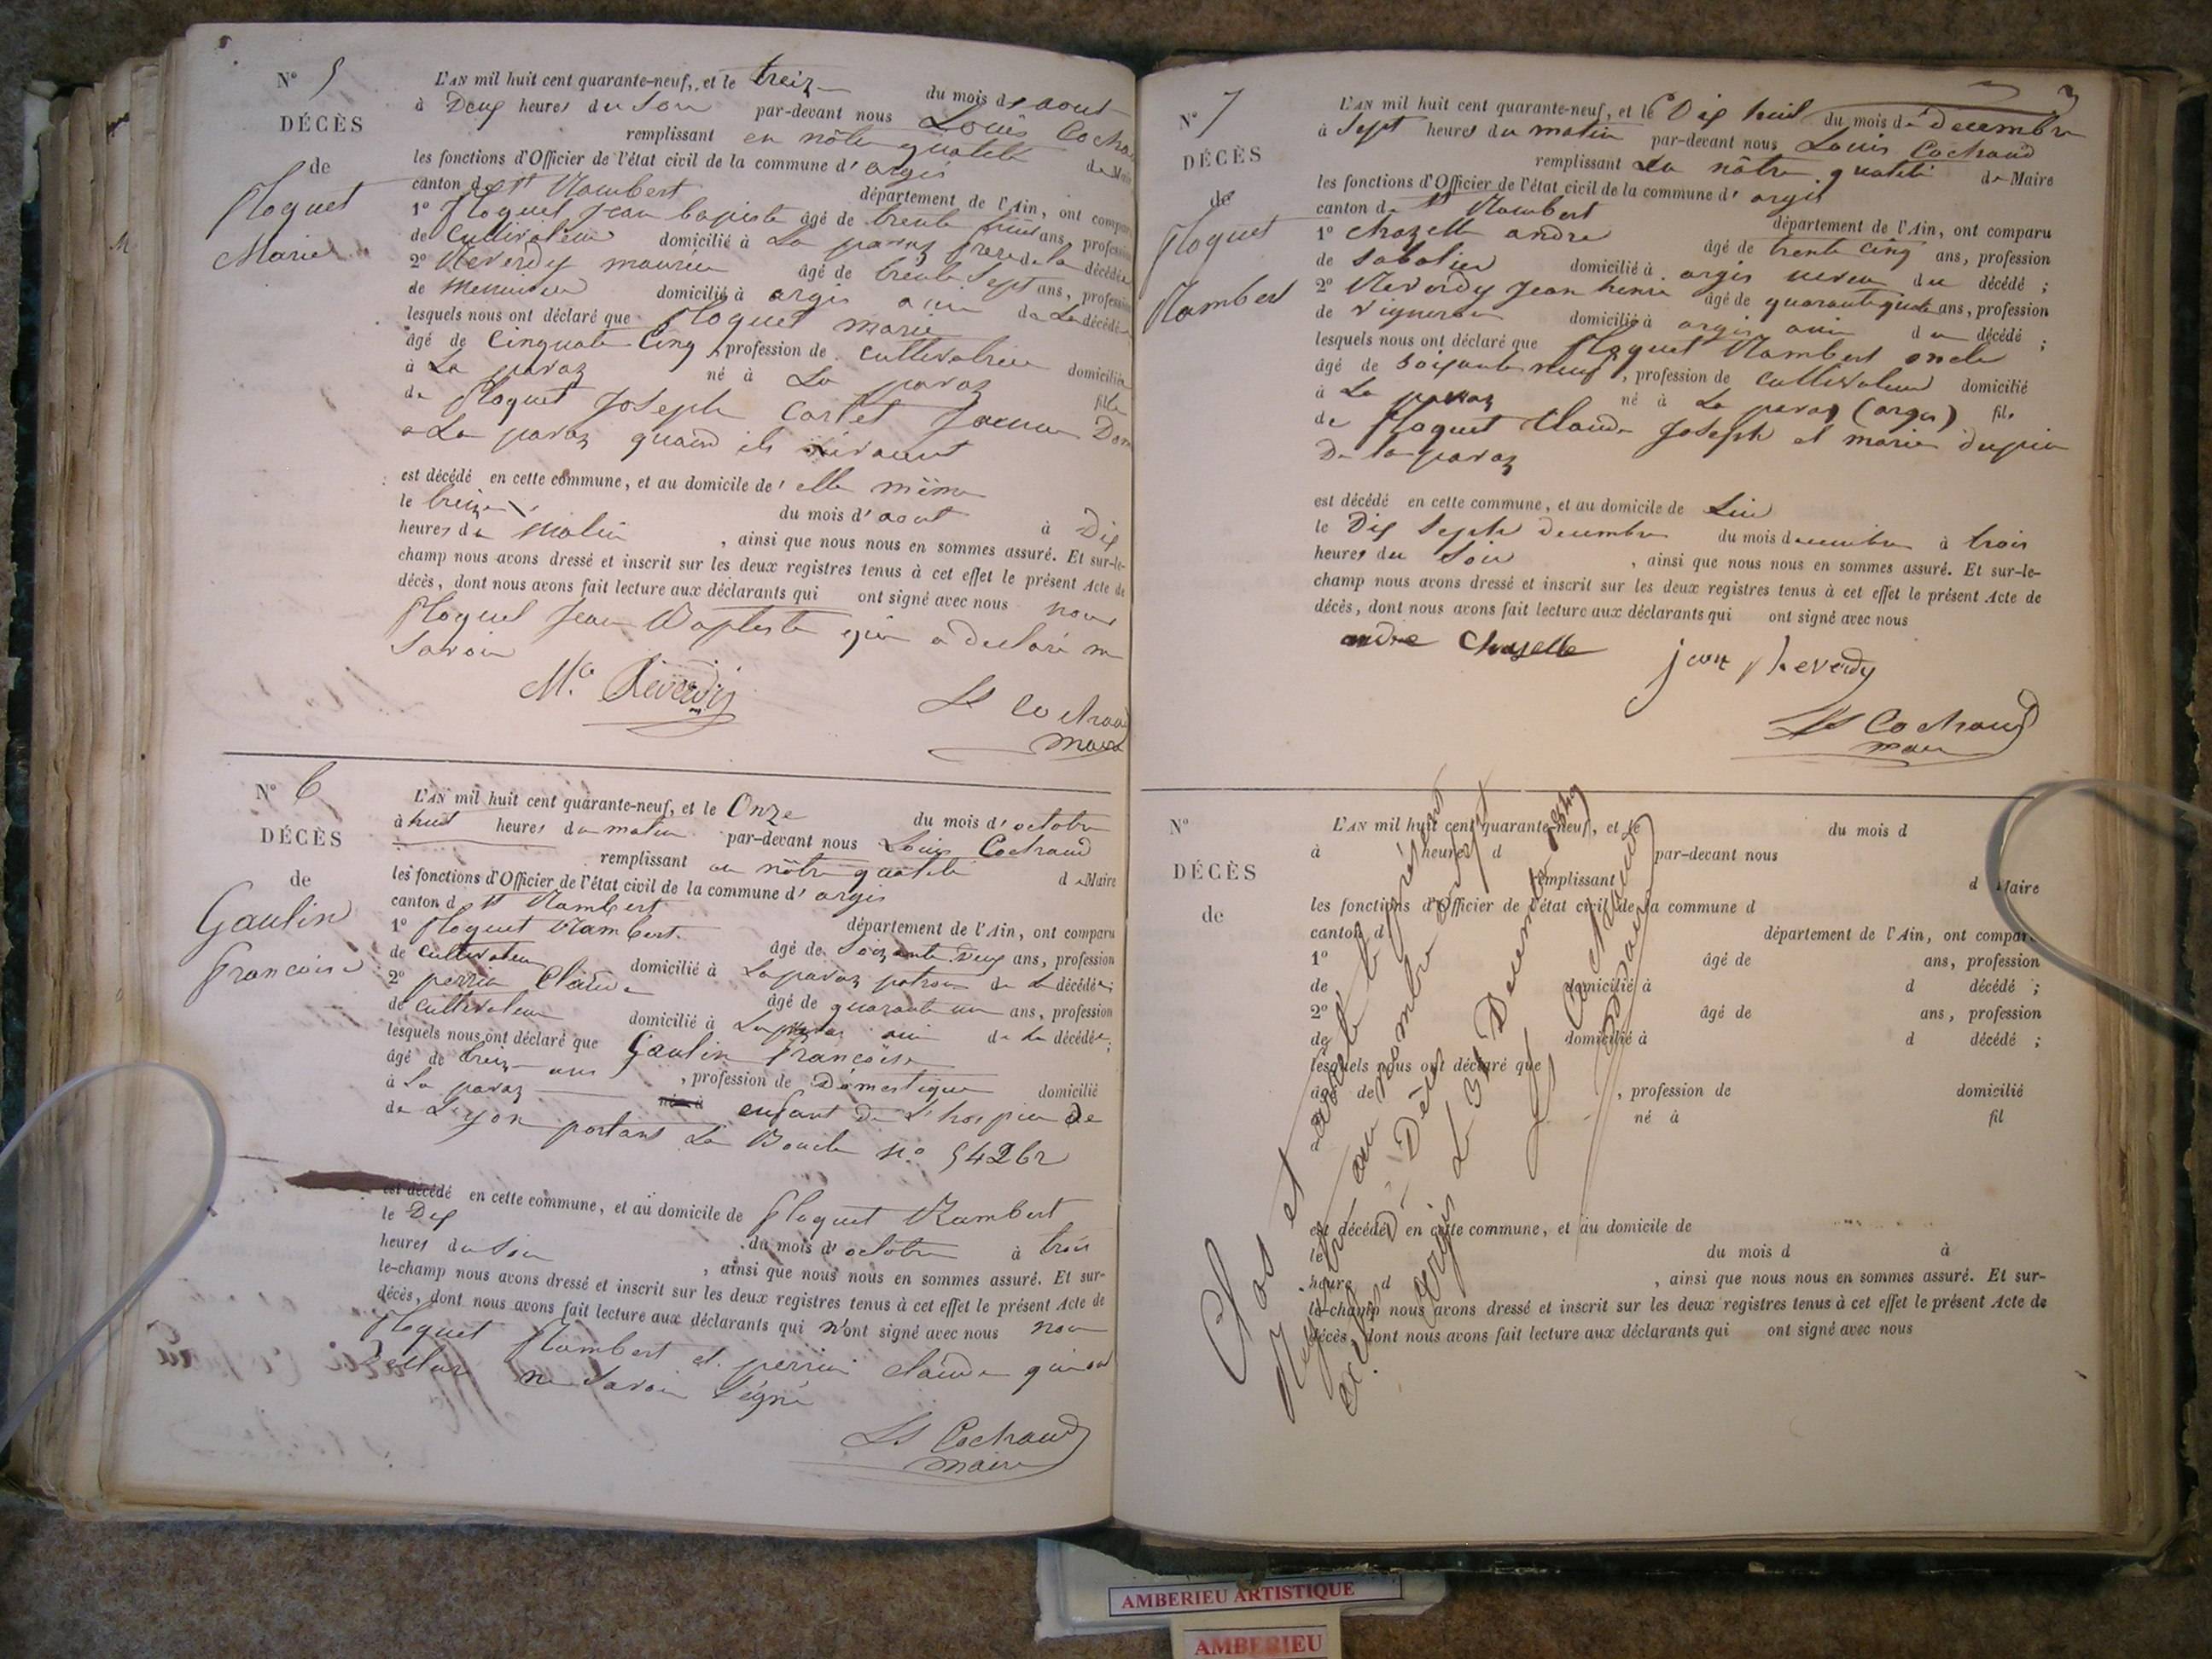 N° 5
DÉCÈS
de
Floquet
Marie
L'AN mil huit cent quarante-neuf, et le treize du mois d'aout
à Deux heures du Soir par-devant nous Louis Cochaud
remplissant en nôtre qualité de Maire
les fonctions d'Officier de l'état civil de la commune d'argis
canton de St Rambert département de l'Ain, ont comparu
1° Floquet Jean baptiste âgé de trente ans, profession
de Cultivateur domicilié à La pavaz frere de la décédée
2° Reverdy maurice âgé de trente Sept ans, profession
de Menuisier domicilié à argis ami de La décédée
lesquels nous ont déclaré que Floquet marie
âgé de Cinquate Cinq, profession de cultivatrice domicilié
à La pavaz né à La pavaz fille
de Floquet Joseph Carlet Jeanne Dom
a La pavaz quand ils vivaient
est décédé en cette commune, et au domicile de elle même
le treize du mois d'aout à Dix
heures du Matin, ainsi que nous nous en sommes assuré. Et sur-le-
champ nous avons dressé et inscrit sur les deux registres tenus à cet effet le présent Acte de
décès, dont nous avons fait lecture aux déclarants qui ont signé avec nous non
Floquet Jean Baptiste qui a declaré ne
Savoir
Mce Reverdy
Ls Cochaud
maire
N° 6
DÉCÈS
de
Gaulin
Francoise
L'AN mil huit cent quarante-neuf, et le Onze du mois d'octobre
à huit heures du matin par-devant nous Louis Cochaud
remplissant en nôtre qualité de Maire
les fonctions d'Officier de l'état civil de la commune d'argis
canton d St Rambert département de l'Ain, ont comparu
1° Floquet Rambert âgé de Soixante Deux ans, profession
de cultivateur domicilié à La pavaz patron de la décédée;
2° perrin Claude âgé de quarante un ans, profession
de cultivateur domicilié à La pavaz ami de la décédée;
lesquels nous ont déclaré que Gaulin Francoise
âgé de treize ans, profession de Domestique domicilié
à La pavaz né à enfant de L'hospice de
de Lyon portant La Boucle n° 54262
est décédé en cette commune, et au domicile de Floquet Rambert
le Dix du mois d'octobre à trois
heures du Soir, ainsi que nous nous en sommes assuré. Et sur-
le-champ nous avons dressé et inscrit sur les deux registres tenus à cet effet le présent Acte de
décès, dont nous avons fait lecture aux déclarants qui n'ont signé avec nous non
Floquet Rambert et perrin claude qui ont
Declaré ne Savoir Segné
Ls Cochaud
maire
3
N° 7
DÉCÈS
de
Floquet
Rambert
L'AN mil huit cent quarante-neuf, et le Dix huit du mois de Decembre
à Sept heures du matin par-devant nous Louis Cochaud
remplissant En nôtre qualité de Maire
les fonctions d'Officier de l'état civil de la commune d'argis
canton de St Rambert département de l'Ain, ont comparu
1° chazelle andre âgé de trente cinq ans, profession
de Sabotier domicilié à argis neveu du décédé;
2° Reverdy Jean henri âgé de quarante quatre ans, profession
de Vigneron domicilié à argis ami du décédé;
lesquels nous ont déclaré que Floquet Rambert oncle
âgé de Soixante neuf, profession de cultivateur domicilié
à La pavaz né à La pavaz (argis) fils
de Floquet Claude Joseph et marie dupin
De la pavaz
est décédé en cette commune, et au domicile de Lui
le Dix Septe Decembre du mois decembre à trois
heures du Soir, ainsi que nous nous en sommes assuré. Et sur-le-
champ nous avons dressé et inscrit sur les deux registres tenus à cet effet le présent Acte de
décès, dont nous avons fait lecture aux déclarants qui ont signé avec nous
andre Chazelle
jean Reverdy
Ls Cochaud
maire
N°
DÉCÈS
de
L'AN mil huit cent quarante-neuf, et le du mois d
à heure d par-devant nous
remplissant d Maire
les fonctions d'Officier de l'état civil de la commune d
canton d département de l'Ain, ont comparu
1° âgé de ans, profession
de domicilié à d décédé;
2° âgé de ans, profession
de domicilié à d décédé;
lesquels nous ont déclaré que
âgé de, profession de domicilié
à né à fil
est décédé en cette commune, et au domicile de
le du mois d à
heure d, ainsi que nous nous en sommes assuré. Et sur-
le-champ nous avons dressé et inscrit sur les deux registres tenus à cet effet le présent Acte de
décès, dont nous avons fait lecture aux déclarants qui ont signé avec nous
Clos et arreté le présent
Registre au nombre de Sept
actes De Déces
argis Le 31 Decembre 1849
Ls Cochaud
maire
AMBERIEU ARTISTIQUE
AMBERIEU